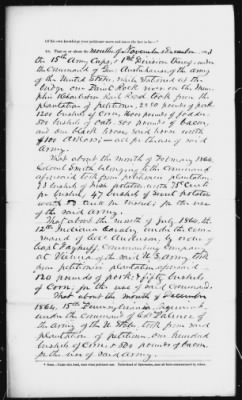 Of his own knowledge your petitioner says and states the facts to be—*
That on or about the month of November & December
the 15th Army Corps, 1st Division being under
the command of Gen. of the army
of the United States, while stationed at the
bridge on Paint Rock river on the Mem-
phis & Charleston Rail Road took from the
plantation of petitioner, pounds of pork
1200 bushels of corn, 4000 pounds of fodder,
bushels of oats, 500 pounds of bacon,
and one black horse, said horse worth
$100 dollars;—all for the use of said
Army.
That about the month of February 1864,
Colonel Smith belonging to the command
aforesaid took from petitioner's plantation
bushels of Irish potatoes worth 75 cents
per bushel, 47 bushels of sweet potatoes
worth cents per bushel; for the use
of the said army.
That about the month of July, 1864, the
12th Indiana Cavalry under the com-
mand of Col. Anderson, by order of
Capt. Commanding Company
at Vienna of the said U.S. army took
from petitioner's plantation aforesaid
120 pounds of pork & fifty bushels
of Corn, for the use of said command.
That about the month of December
1864, 15th Pennsylvania regiment,
under the command of Col. Palmer of
the army of the U. States, took from said
plantation of petitioner one hundred
bushels of Corn & 500 pounds of bacon
for the use of said army.